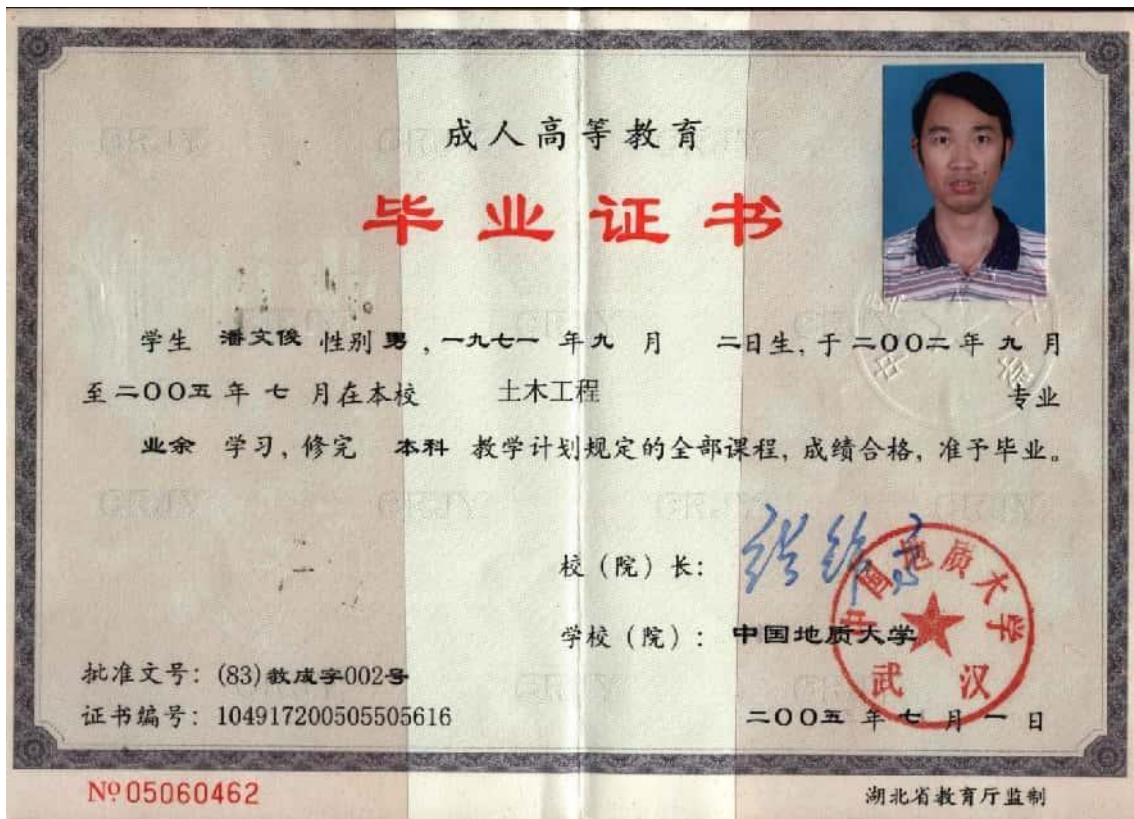 成人高等教育
毕业证书
学生 潘文俊 性别 男，一九七一 年 九 月 二日生，于 二〇〇二 年 九 月
至 二〇〇五 年 七 月在本校 土木工程 专业
业余 学习，修完 本科 教学计划规定的全部课程，成绩合格，准予毕业。
校（院）长：
学校（院）：中国地质大学
中国地质大学
武汉
批准文号：(83)教成字002号
证书编号：104917200505505616
二〇〇五 年 七 月 一 日
№ 05060462
湖北省教育厅监制